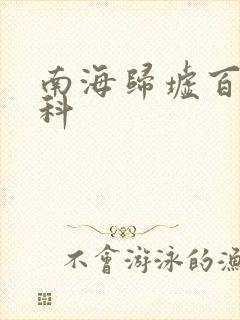 南海歸墟百
科
不會游泳的漁